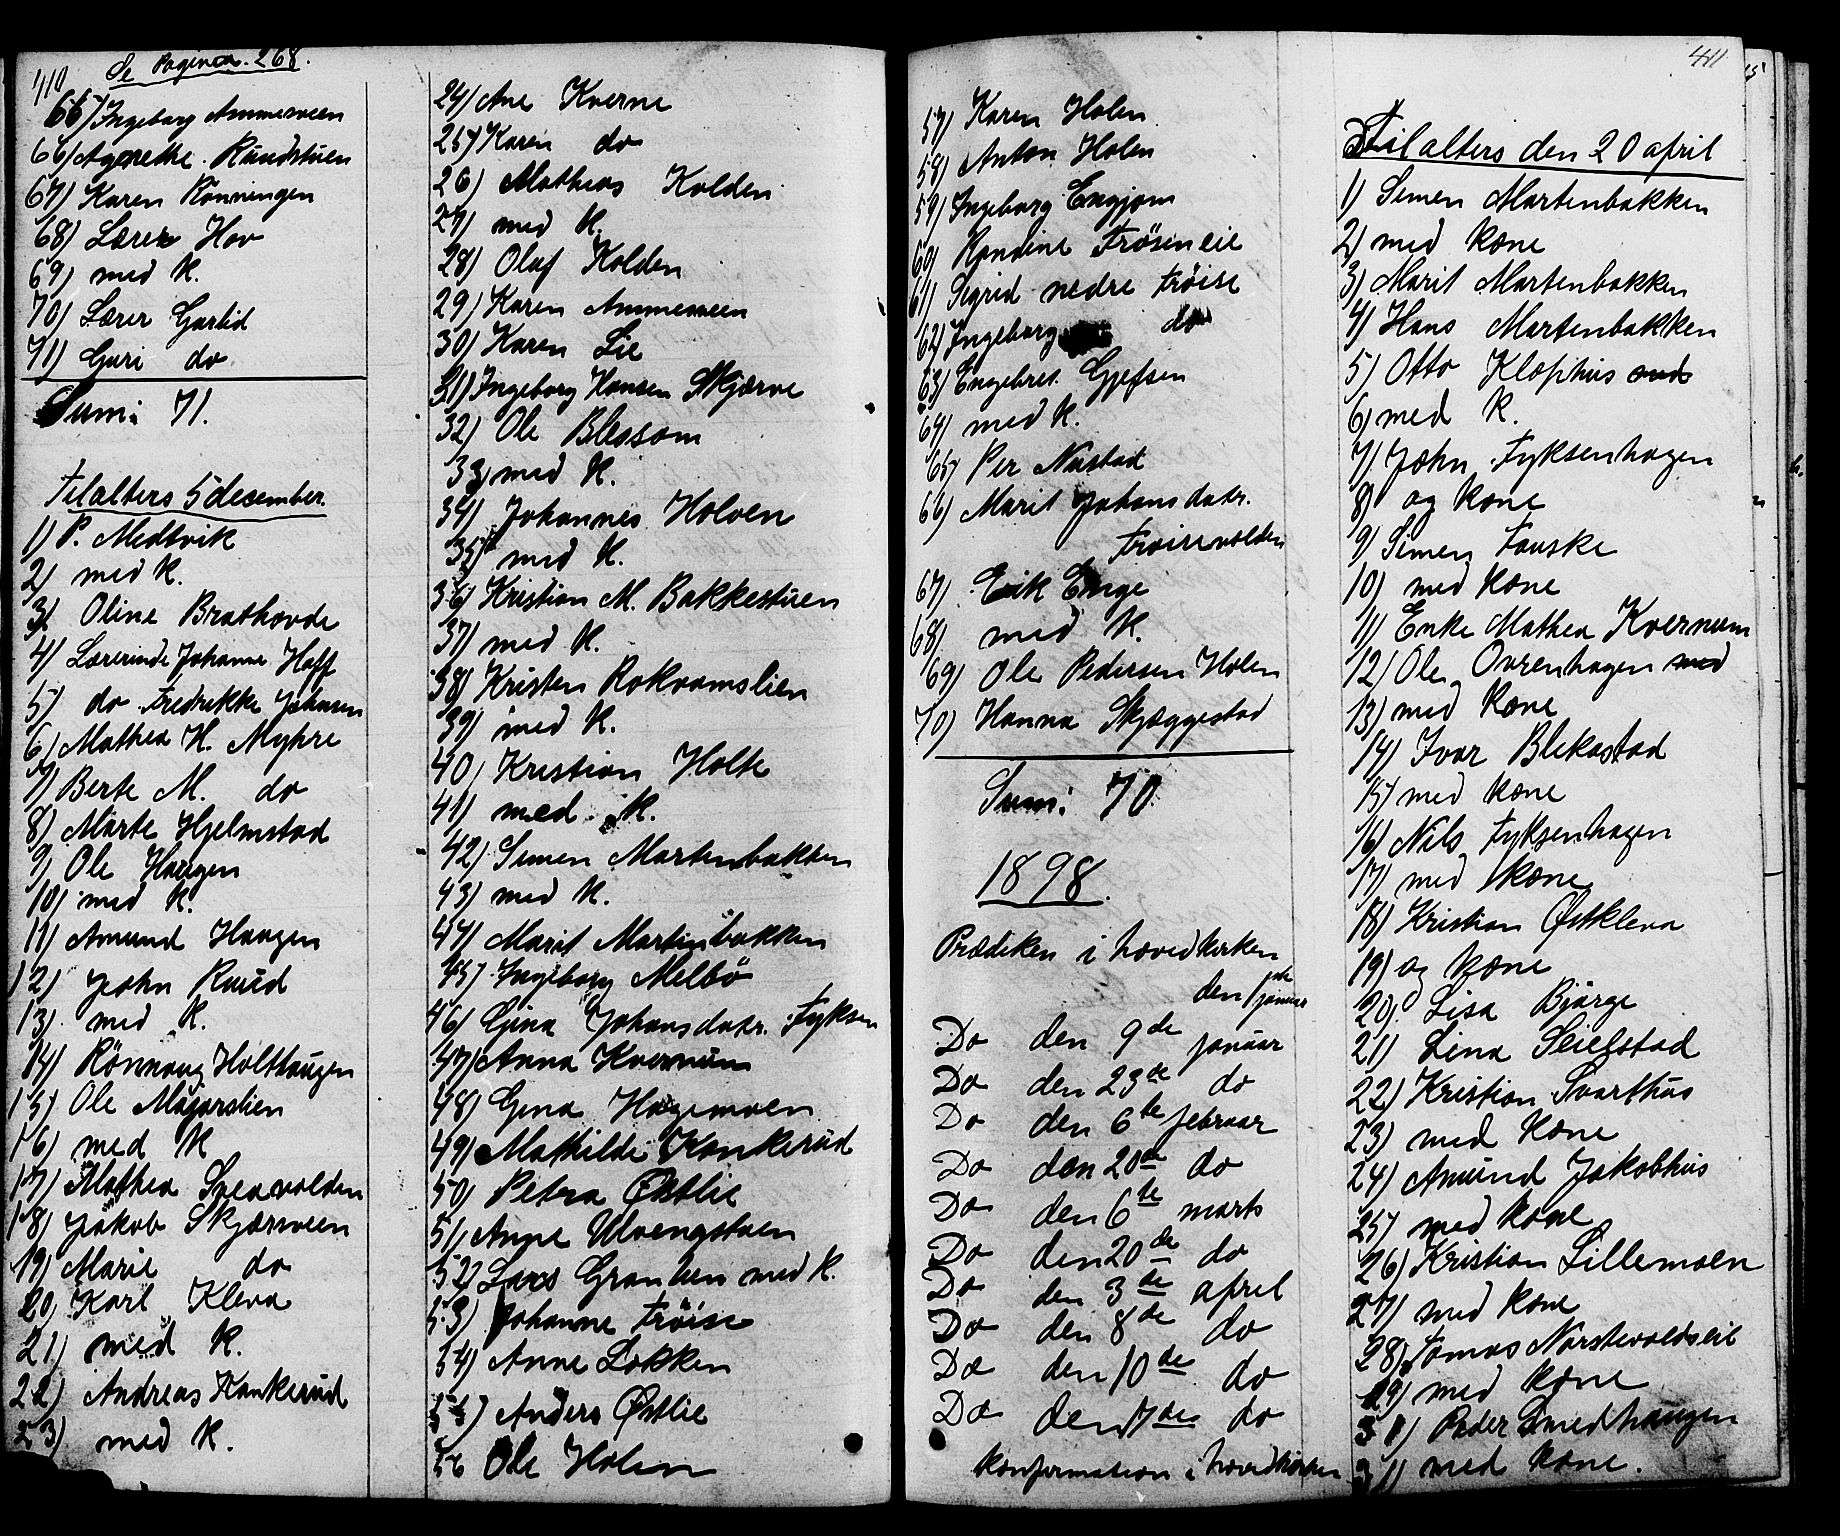 410 Se Pagina. 268.
66) Ingeborg Ammerveen
66) Agnethe. Rundstuen
67) Karen Rønningen
68) Lærer Hov
69) med K.
70) Lærer Garlid
71) Guri do
Sum: 71.
Til alters 5 december.
1) P. Medtvik
2) med k.
3) Oline Brathovde
4) Lærerinde Johanne Hoff
5) do Fredrikke Johnsen
6) Mathea H. Myhre
7) Berte M. do
8) Marte Hjelmstad
9) Ole Haugen
10) med K.
11) Amund Haagen
12) John Ruud
13) med K.
14) Rönnaug Holthaugen
15) Ole Majorslien
16) med K
17) Mathea Sveavolden
18) Jakob Skjærsveen
19) Marie do
20) Karl Kleva
21) med K.
22) Andreas Kankerud
23) med K.
24) Ane Kverne
25) Karen do
26) Mathias Kolden
27) med K.
28) Olaf Kolden
29) Karen Ammerveen
30) Karen Lie
31) Ingeborg Hansen Skjærve
32) Ole Blessom
33) med K.
34) Johannes Holven
35) med K.
36) Kristian M. Bakkestuen
37) med K.
38) Kristen Rokvamslien
39) med K.
40) Kristian Holte
41) med K.
42) Simen Martenbakken
43) med K.
44) Marit Martinbakken
45) Ingeborg Melbö
46) Gina Johansdatr. Fyksen
47) Anna Kvernum
48) Gina Hagemoen
49) Mathilde Kankerud
50) Petra Østlie
51) Anne Ulvengstuen
52) Lars Granlien med K.
53) Johanne Fröise
54) Anne Løkken
55) Anders Østlie
56 Ole Holen
57) Karen Holen
58) Anton Holen
59) Ingeborg Engjom
60) Rondine Frösen eie
61) Sigrid nedre Fröise
62) Ingeborg do
63) Engebret Gjefsen
64) med K.
65) Per Nustad
66) Marit Johansdatr.
Froisevolden
67) Erik Enge
68) med K.
69) Ole Pedersen Holen
70) Hanna Skjæggestad
Sum: 70
1898.
Prædiken i hovedkirken
den 1ste januar
Do den 9de januar
Do den 23de do
Do den 6te februar
Do den 20de do
Do den 6te marts
Do den 20de do
Do den 3de april
Do den 8de do
Do den 10de do
Do den 17de do
konfirmation i hovedkirken
411
Til alters den 20 april
1) Simen Martenbakken
2) med kone
3) Marit Martenbakken
4) Hans Martenbakken
5) Otto Klophus
6) med K.
7) John Fyksenhagen
8) og kone
9) Simen Fauske
10) med kone
11) Enke Mathea Kvernum
12) Ole Ovrenhagen med
13) med kone
14) Ivar Blekastad
15) med kone
16) Nils Fyksenhagen
17) med kone
18) Kristian Østkleva
19) og kone
20) Lisa Bjørge
21) Lina Seielstad
22) Kristian Svarthus
23) med kone
24) Amund Jakobhus
25) med kone
26) Kristian Lillemoen
27) med kone
28) Tomas Norstevoldseie
29) med kone
30) Peder Smedhaugen
31) med kone.